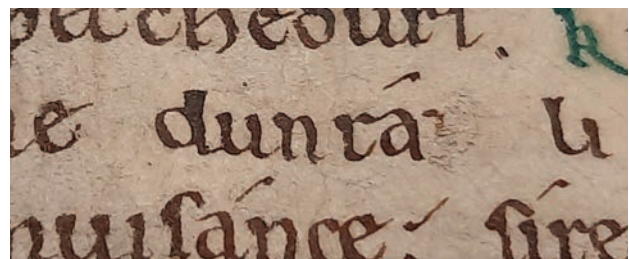 pecchedurs.
e dunrá li
nuisánce; sire